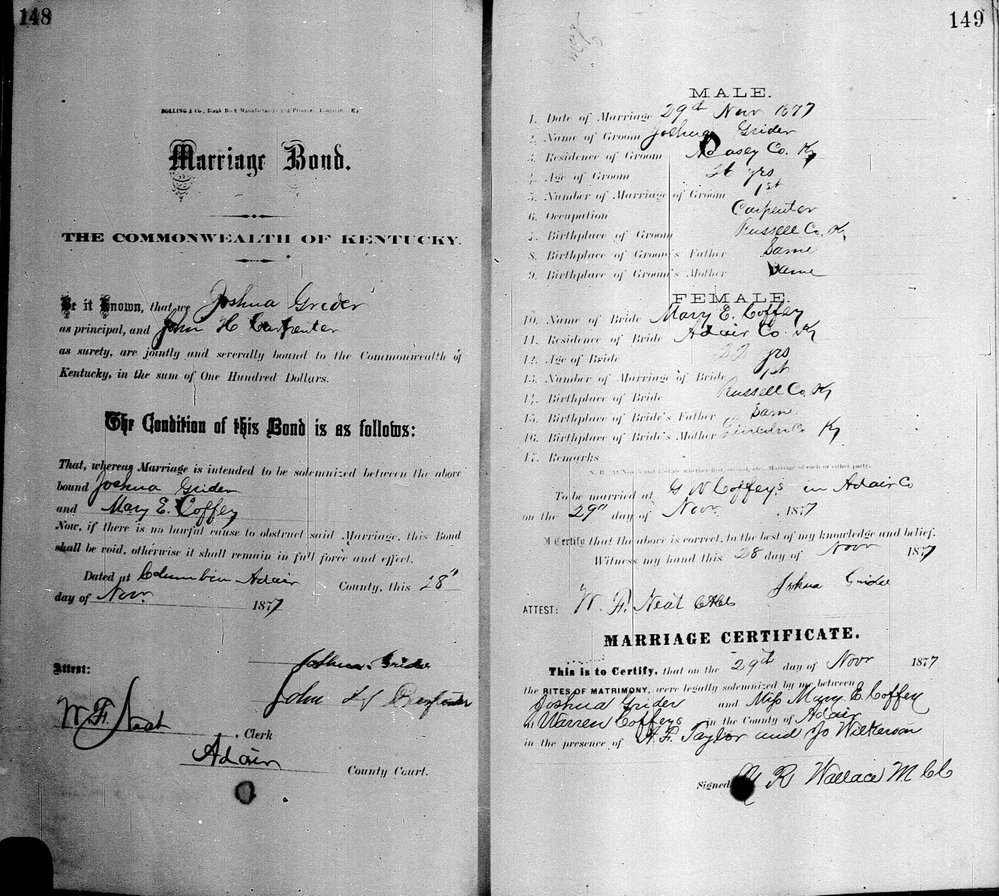 148
Marriage Bond.
THE COMMONWEALTH OF KENTUCKY.
Be it Known, that we Joshua Grider
as principal, and John H Carpenter
as surety, are jointly and severally bound to the Commonwealth of
Kentucky, in the sum of One Hundred Dollars.
The Condition of this Bond is as follows:
That, whereas Marriage is intended to be solemnized between the above
bound Joshua Grider
and Mary E. Coffey
Now, if there is no lawful cause to obstruct said Marriage, this Bond
shall be void, otherwise it shall remain in full force and effect.
Dated at Columbia Adair County, this 28th
day of Nov. 1877
Joshua Grider
Attest:
John H
W. F. Neat, Clerk
Adair County Court.
149
MALE.
1. Date of Marriage 29th Nov 1877
2. Name of Groom Joshua Grider
3. Residence of Groom Casey Co. Ky
4. Age of Groom yrs
5. Number of Marriage of Groom 1st
6. Occupation Carpenter
7. Birthplace of Groom Russell Co. Ky
8. Birthplace of Groom's Father Same
9. Birthplace of Groom's Mother Same
FEMALE.
10. Name of Bride Mary E. Coffey
11. Residence of Bride Adair Co. Ky
12. Age of Bride yrs
13. Number of Marriage of Bride 1st
14. Birthplace of Bride Russell Co. Ky
15. Birthplace of Bride's Father Same
16. Birthplace of Bride's Mother Lincoln Co Ky
17. Remarks
To be married at G W Coffeys in Adair Co
on the 29th day of Novr. 1877
I Certify that the above is correct, to the best of my knowledge and belief.
Witness my hand this 28 day of Novr 1877
Joshua Grider
ATTEST: W. F. Neat
MARRIAGE CERTIFICATE.
This is to Certify, that on the 29th day of Novr 1877
the RITES OF MATRIMONY, were legally solemnized by me between
Joshua Grider and Miss Mary E. Coffey
at Warren Coffeys in the County of Adair
in the presence of Taylor and Jo Wilkerson
Signed R Wallace